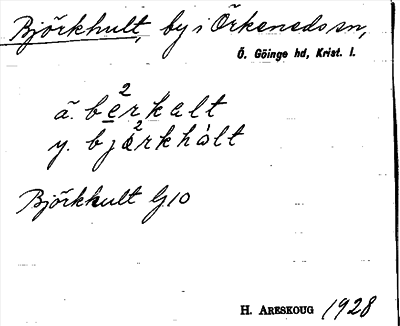 Björkhult, by i Örkeneds sn,
Ö. Göinge hd, Krist. l.
ä. be²rkalt
y. bjö²rkhàlt
Björkhult G10
H. Areskoug 1928